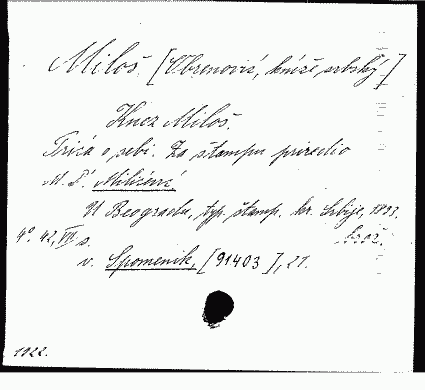 Miloš. [Obrenović, kníže srbský.]
Knez Miloš.
Priča o sebi. Za štampu priredio
M. Đ. Milićević,
U Beogradu, typ. štamp. kr. Srbije, 1893.
4º. 42, VII s. brož.
v. Spomenik, [91403], 21.
1922.